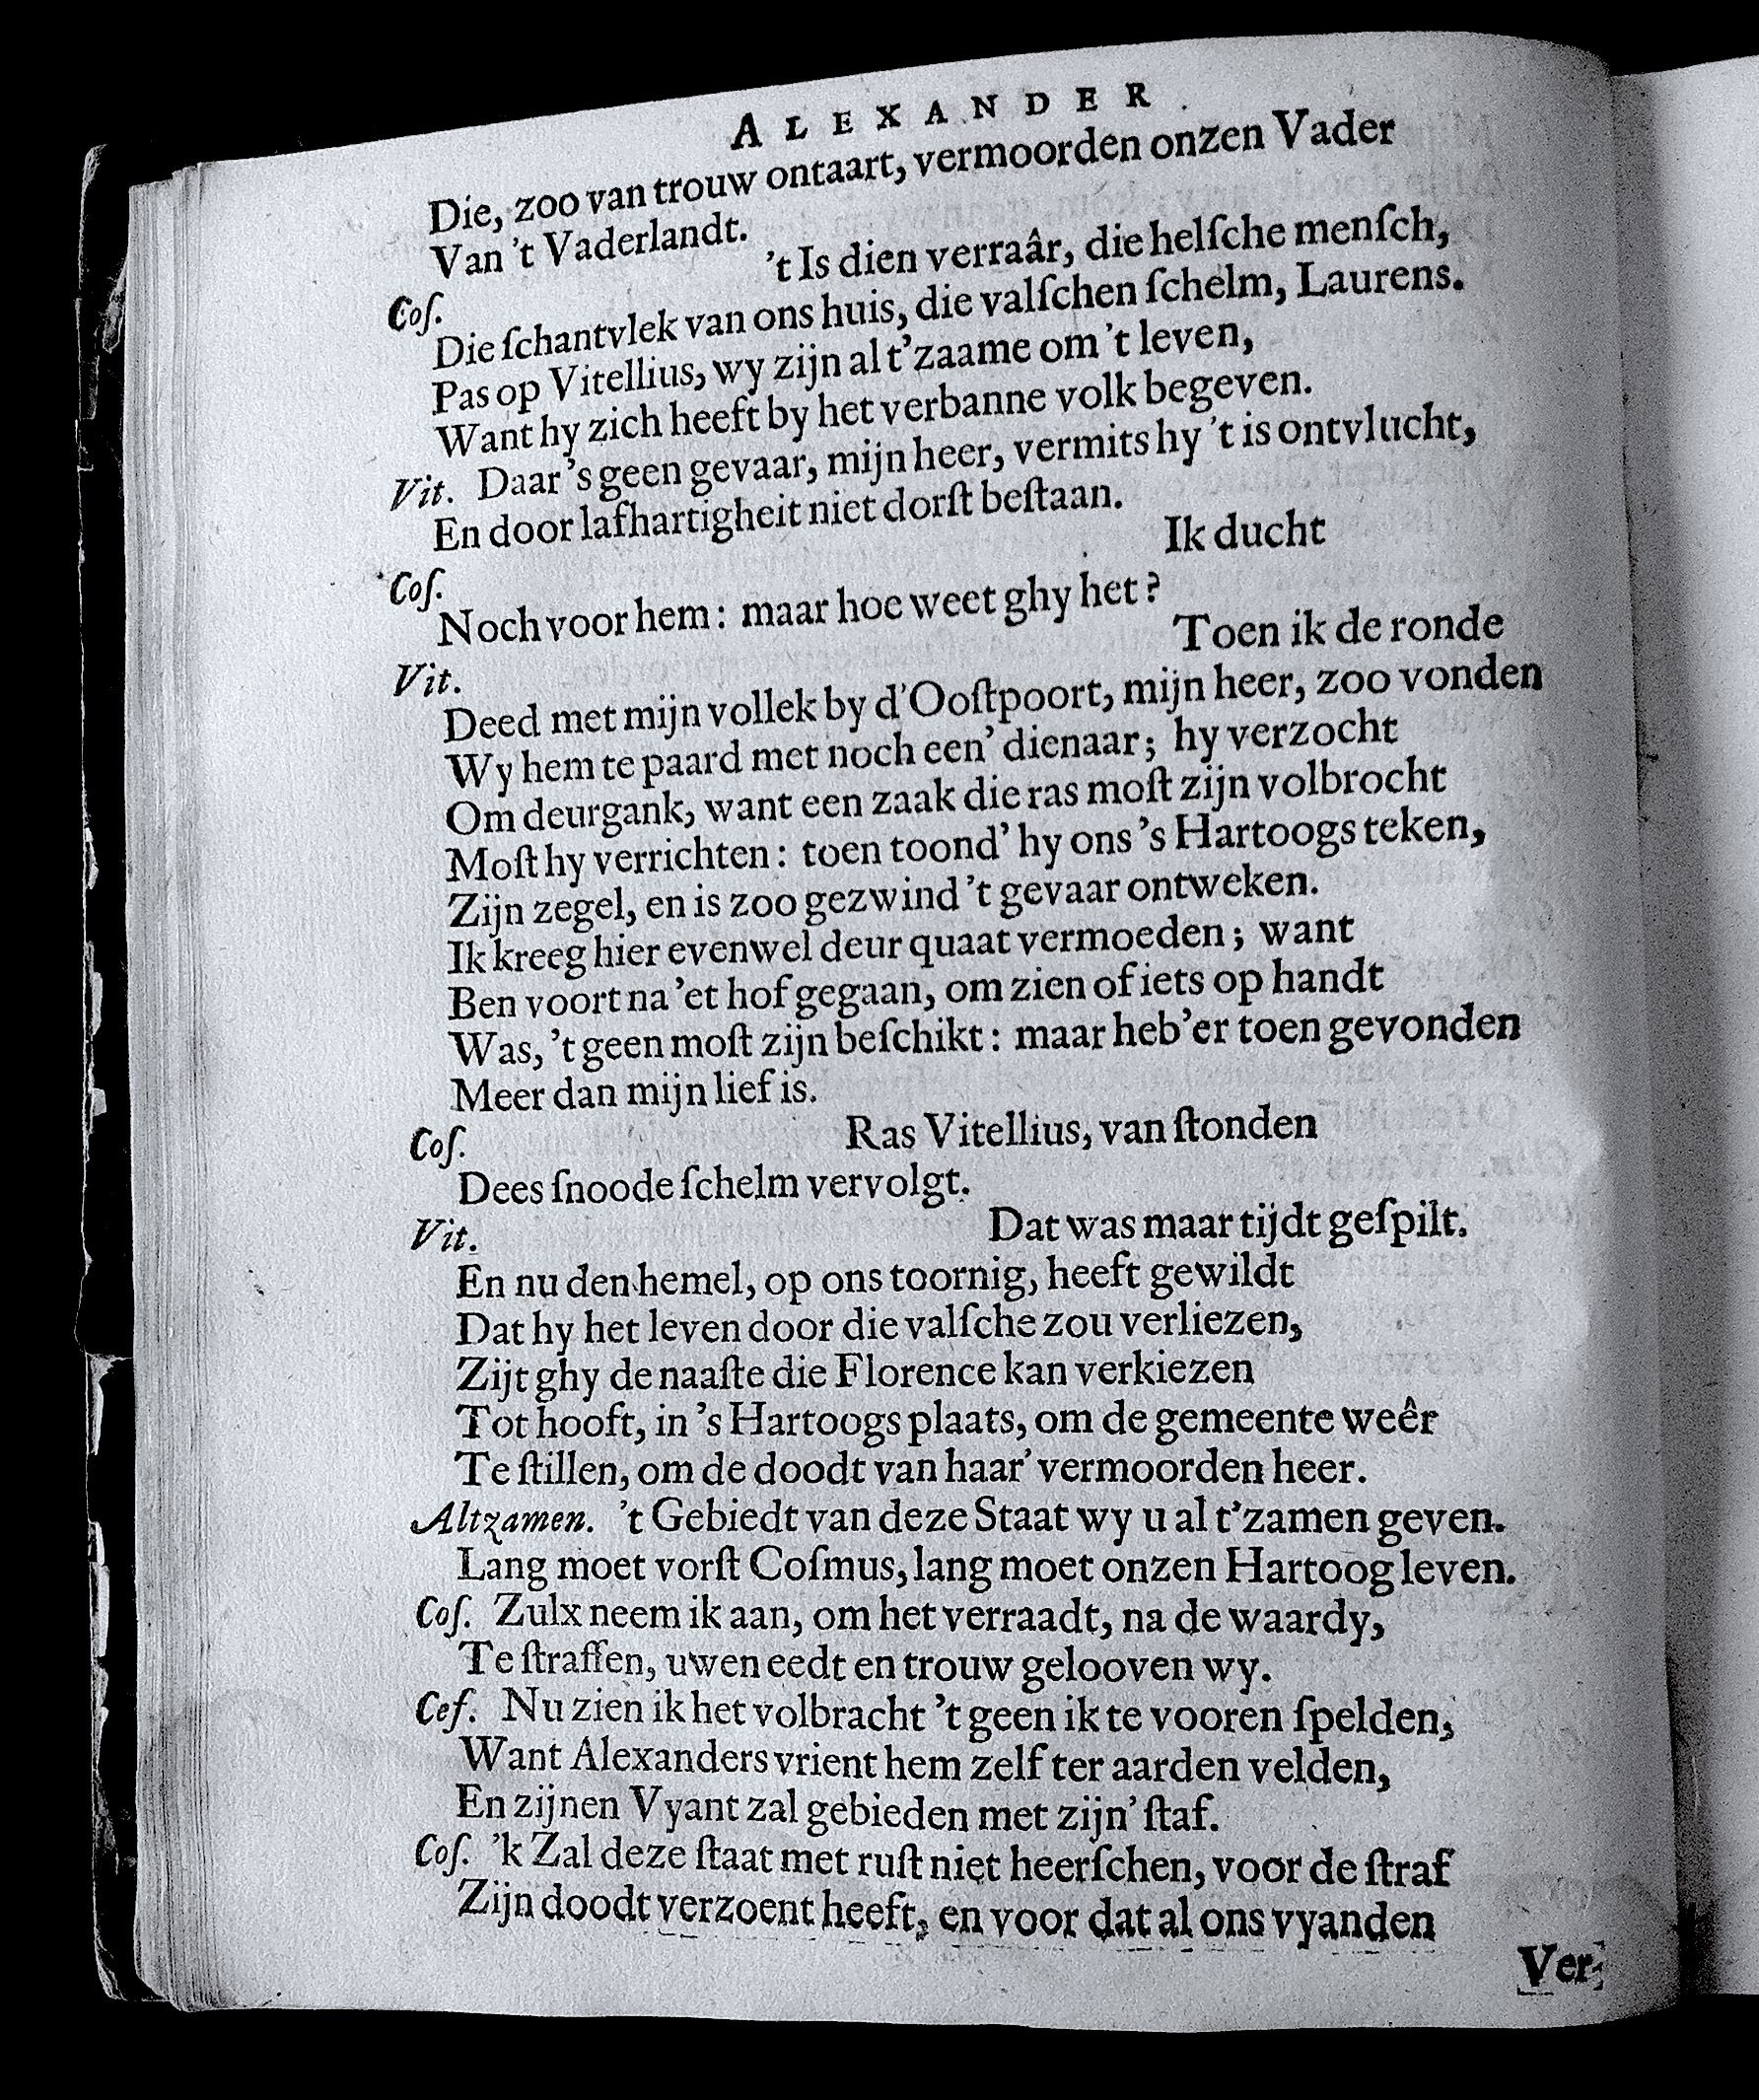 ALEXANDER.
Die, zoo van trouw ontaart, vermoorden onzen Vader
Van 't Vaderlandt.
Coſ. 't Is dien verraâr, die helſche menſch,
Die ſchantvlek van ons huis, die valſchen ſchelm, Laurens.
Pas op Vitellius, wy zijn al t'zaame om 't leven,
Want hy zich heeft by het verbanne volk begeven.
Vit. Daar's geen gevaar, mijn heer, vermits hy 't is ontvlucht,
En door lafhartigheit niet dorſt beſtaan.
Coſ. Ik ducht
Noch voor hem: maar hoe weet ghy het?
Vit. Toen ik de ronde
Deed met mijn vollek by d'Ooſtpoort, mijn heer, zoo vonden
Wy hem te paard met noch een' dienaar; hy verzocht
Om deurgank, want een zaak die ras moſt zijn volbrocht
Moſt hy verrichten: toen toond' hy ons 's Hartoogs teken,
Zijn zegel, en is zoo gezwind 't gevaar ontweken.
Ik kreeg hier evenwel deur quaat vermoeden; want
Ben voort na 'et hof gegaan, om zien of iets op handt
Was, 't geen moſt zijn beſchikt: maar heb'er toen gevonden
Meer dan mijn lief is.
Coſ. Ras Vitellius, van ſtonden
Dees ſnoode ſchelm vervolgt.
Vit. Dat was maar tijdt geſpilt.
En nu den hemel, op ons toornig, heeft gewildt
Dat hy het leven door die valſche zou verliezen,
Zijt ghy de naaſte die Florence kan verkiezen
Tot hooft, in 's Hartoogs plaats, om de gemeente weêr
Te ſtillen, om de doodt van haar' vermoorden heer.
Altzamen. 't Gebiedt van deze Staat wy u al t'zamen geven.
Lang moet vorſt Coſmus, lang moet onzen Hartoog leven.
Coſ. Zulx neem ik aan, om het verraadt, na de waardy,
Te ſtraffen, uwen eedt en trouw gelooven wy.
Ceſ. Nu zien ik het volbracht 't geen ik te vooren ſpelden,
Want Alexanders vrient hem zelf ter aarden velden,
En zijnen Vyant zal gebieden met zijn' ſtaf.
Coſ. 'k Zal deze ſtaat met ruſt niet heerſchen, voor de ſtraf
Zijn doodt verzoent heeft, en voor dat al ons vyanden
Ver-